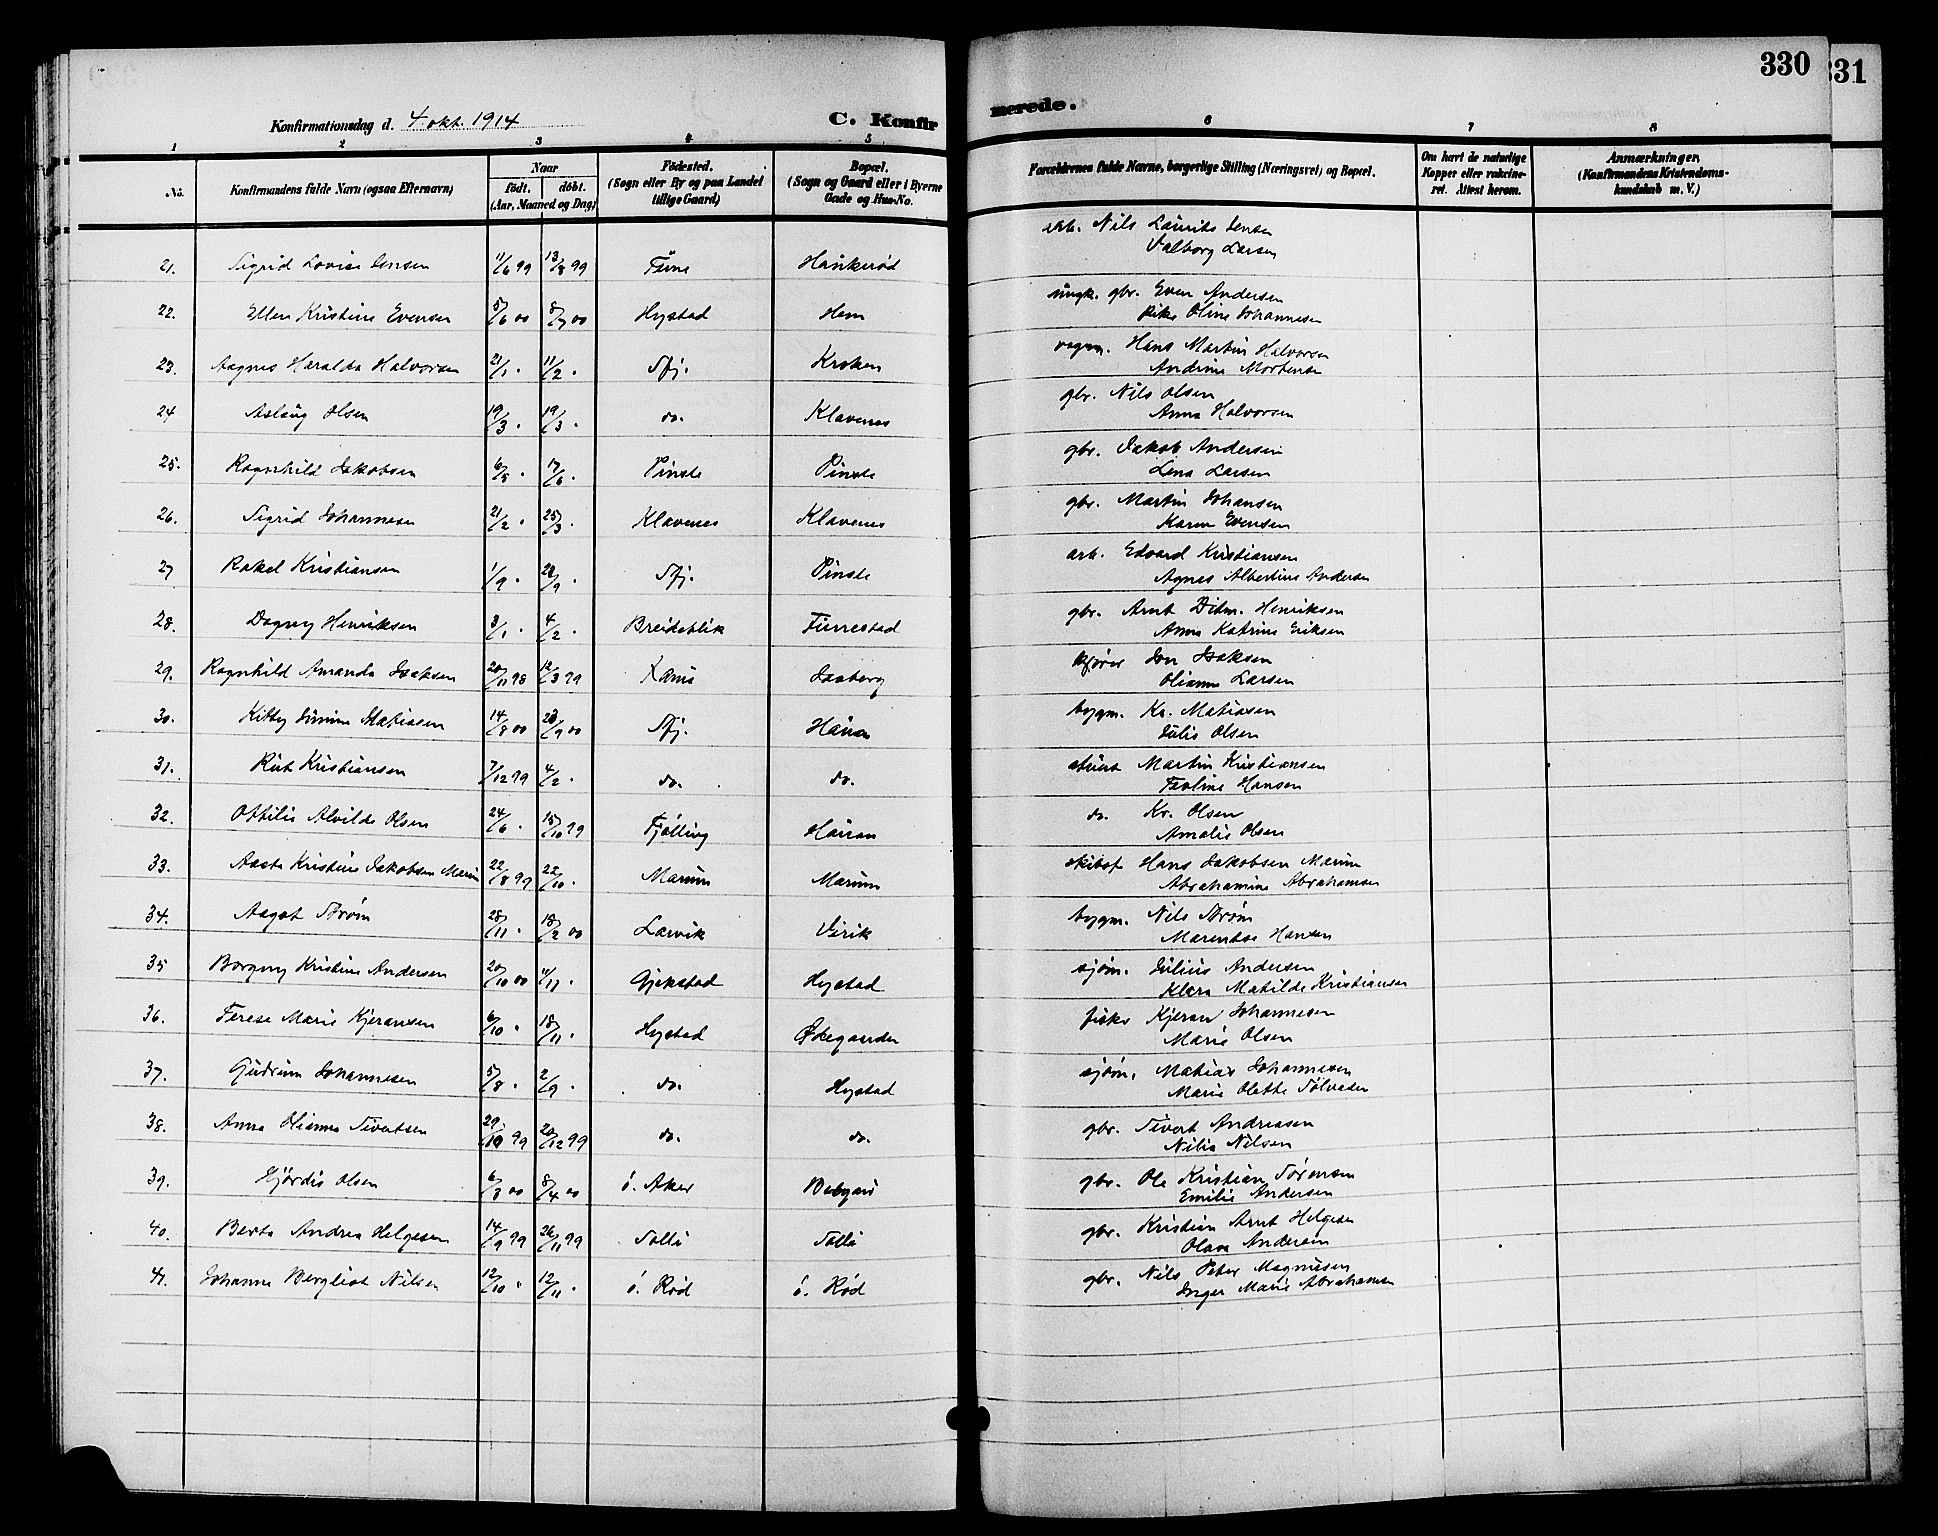 330
331
Konfirmationsdag d. 4. okt. 1914
C. Konfirmerede.
1 2 3 4 5 6 7 8
No. Konfirmandens fulde Navn (ogsaa Efternavn) Naar født. døbt. (Aar, Maaned og Dag) Fødested. (Sogn eller By og paa Landet tillige Gaard) Bopæl. (Sogn og Gaard eller i Byerne Gade og Hus-No. Forældrenes fulde Navne, borgerlige Stilling (Næringsvei) og Bopæl. Om havt de naturlige Kopper eller vaccineret. Attest herom. Anmærkninger. (Konfirmandens Kristendomskundskab m. V.)
21. Sigrid Lovise Jensen 11/6 99 13/8 99 Haukerød arb. Nils Laurits Jensen
Valborg Larsen
22. Ellen Kristine Evensen 5/6 00 8/7 00 Hystad Hem ungk. gbr. Even Andersen
pike Oline Johannesen
23. Aagnes Haralda Halvorsen 21/1 . 11/2 . Sfj. Kroken vogm. Hans Martin Halvorsen
Andrine Mortensen
24 Aslaug Olsen 19/3 . 19/3 . do. Klavenes gbr. Nils Olsen
Anna Halvorsen
25. Ragnhild Jakobsen 6/5 . 17/6 . Pinsle Pinsle gbr. Jakob Andersen
Lena Larsen
26. Sigrid Johannesen 21/2 . 25/3 . Klavenes Klavenes gbr. Martin Johansen
Karen Evensen
27 Rakel Kristiansen 1/9 . Sfj. Pinsle arb. Edvard Kristiansen
Agnes Albertine Andersen
28. Dagny Henriksen 3/1 . 4/2 . Breideblik Furrestad gbr. Arnt Ditm. Henriksen
Anna Katrine Eriksen
29. Ragnhild Amanda Isaksen 20/11 98 12/3 99 Isaberg kjører Jon Isaksen
Olianne Larsen
30. Kitty Matiasen 14/8 00 23/9 00 Sfj. Hauan bygm. Kr. Matiasen
Julie Olsen
31. Rut Kristiansen 7/12 99 4/2 . do. do. stuert Martin Kristiansen
Hansen
32. Ottilie Alvilde Olsen 24/6 . 15/10 99 Tjølling Hauan do. Kr. Olsen
Amalie Olsen
33. Aasta Kristine Jakobsen Marum 22/8 99 22/10 . Marum Marum skibsf Hans Jakobsen Marum
Abrahamine Abrahamsen
34. Aagot Strøm 28/11 . 18/2 00 Larvik Virik bygm. Nils Strøm
Marentse Hansen
35 Borgny Kristine Andersen 20/10 00 11/11 . Gjekstad Hystad sjøm. Julius Andersen
Klara Matilde Kristiansen
36. Terese Marie Kjeransen 6/10 . 18/11 . Hystad Økegaarden fisker Kjeran Johannesen
Marie Olsen
37. Gudrun Johannesen 5/8 . 2/9 . do. Hystad sjøm. Matias Johannesen
Marie Olette Sølvesen
38. Anna Olianna Sivertsen 29/10 99 20/12 99 do. do. gbr. Sivert Andreasen
Nilia Nilsen
39. Hjørdis Olsen 6/3 00 8/4 00 ö. Aker gbr. Ole Kristian Sørensen
Emilie Andersen
40. Berta Andrea Helgesen 14/9 99 26/11 99 gbr. Kristian Arnt Helgesen
Olava Andersen
41. Johanne Bergliot Nilsen 12/10 . 12/11 . ö. Rød ö. Rød gbr. Nils Peter Magnusen
Inger Marie Abrahamsen